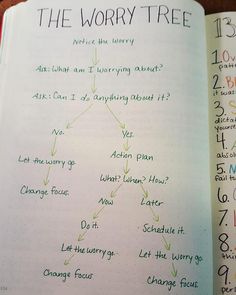 THE WORRY TREE
Notice the Worry
Ask: What am I worrying about?
Ask: Can I do anything about it?
No. Yes.
Let the worry go. Action plan
Change focus. What? When? How?
Now Later
Do it. Schedule it.
Let the worry go. Let the worry go.
Change focus Change focus.
13
1.
2.
3.
4.
5.
6.
7.
8.
9.